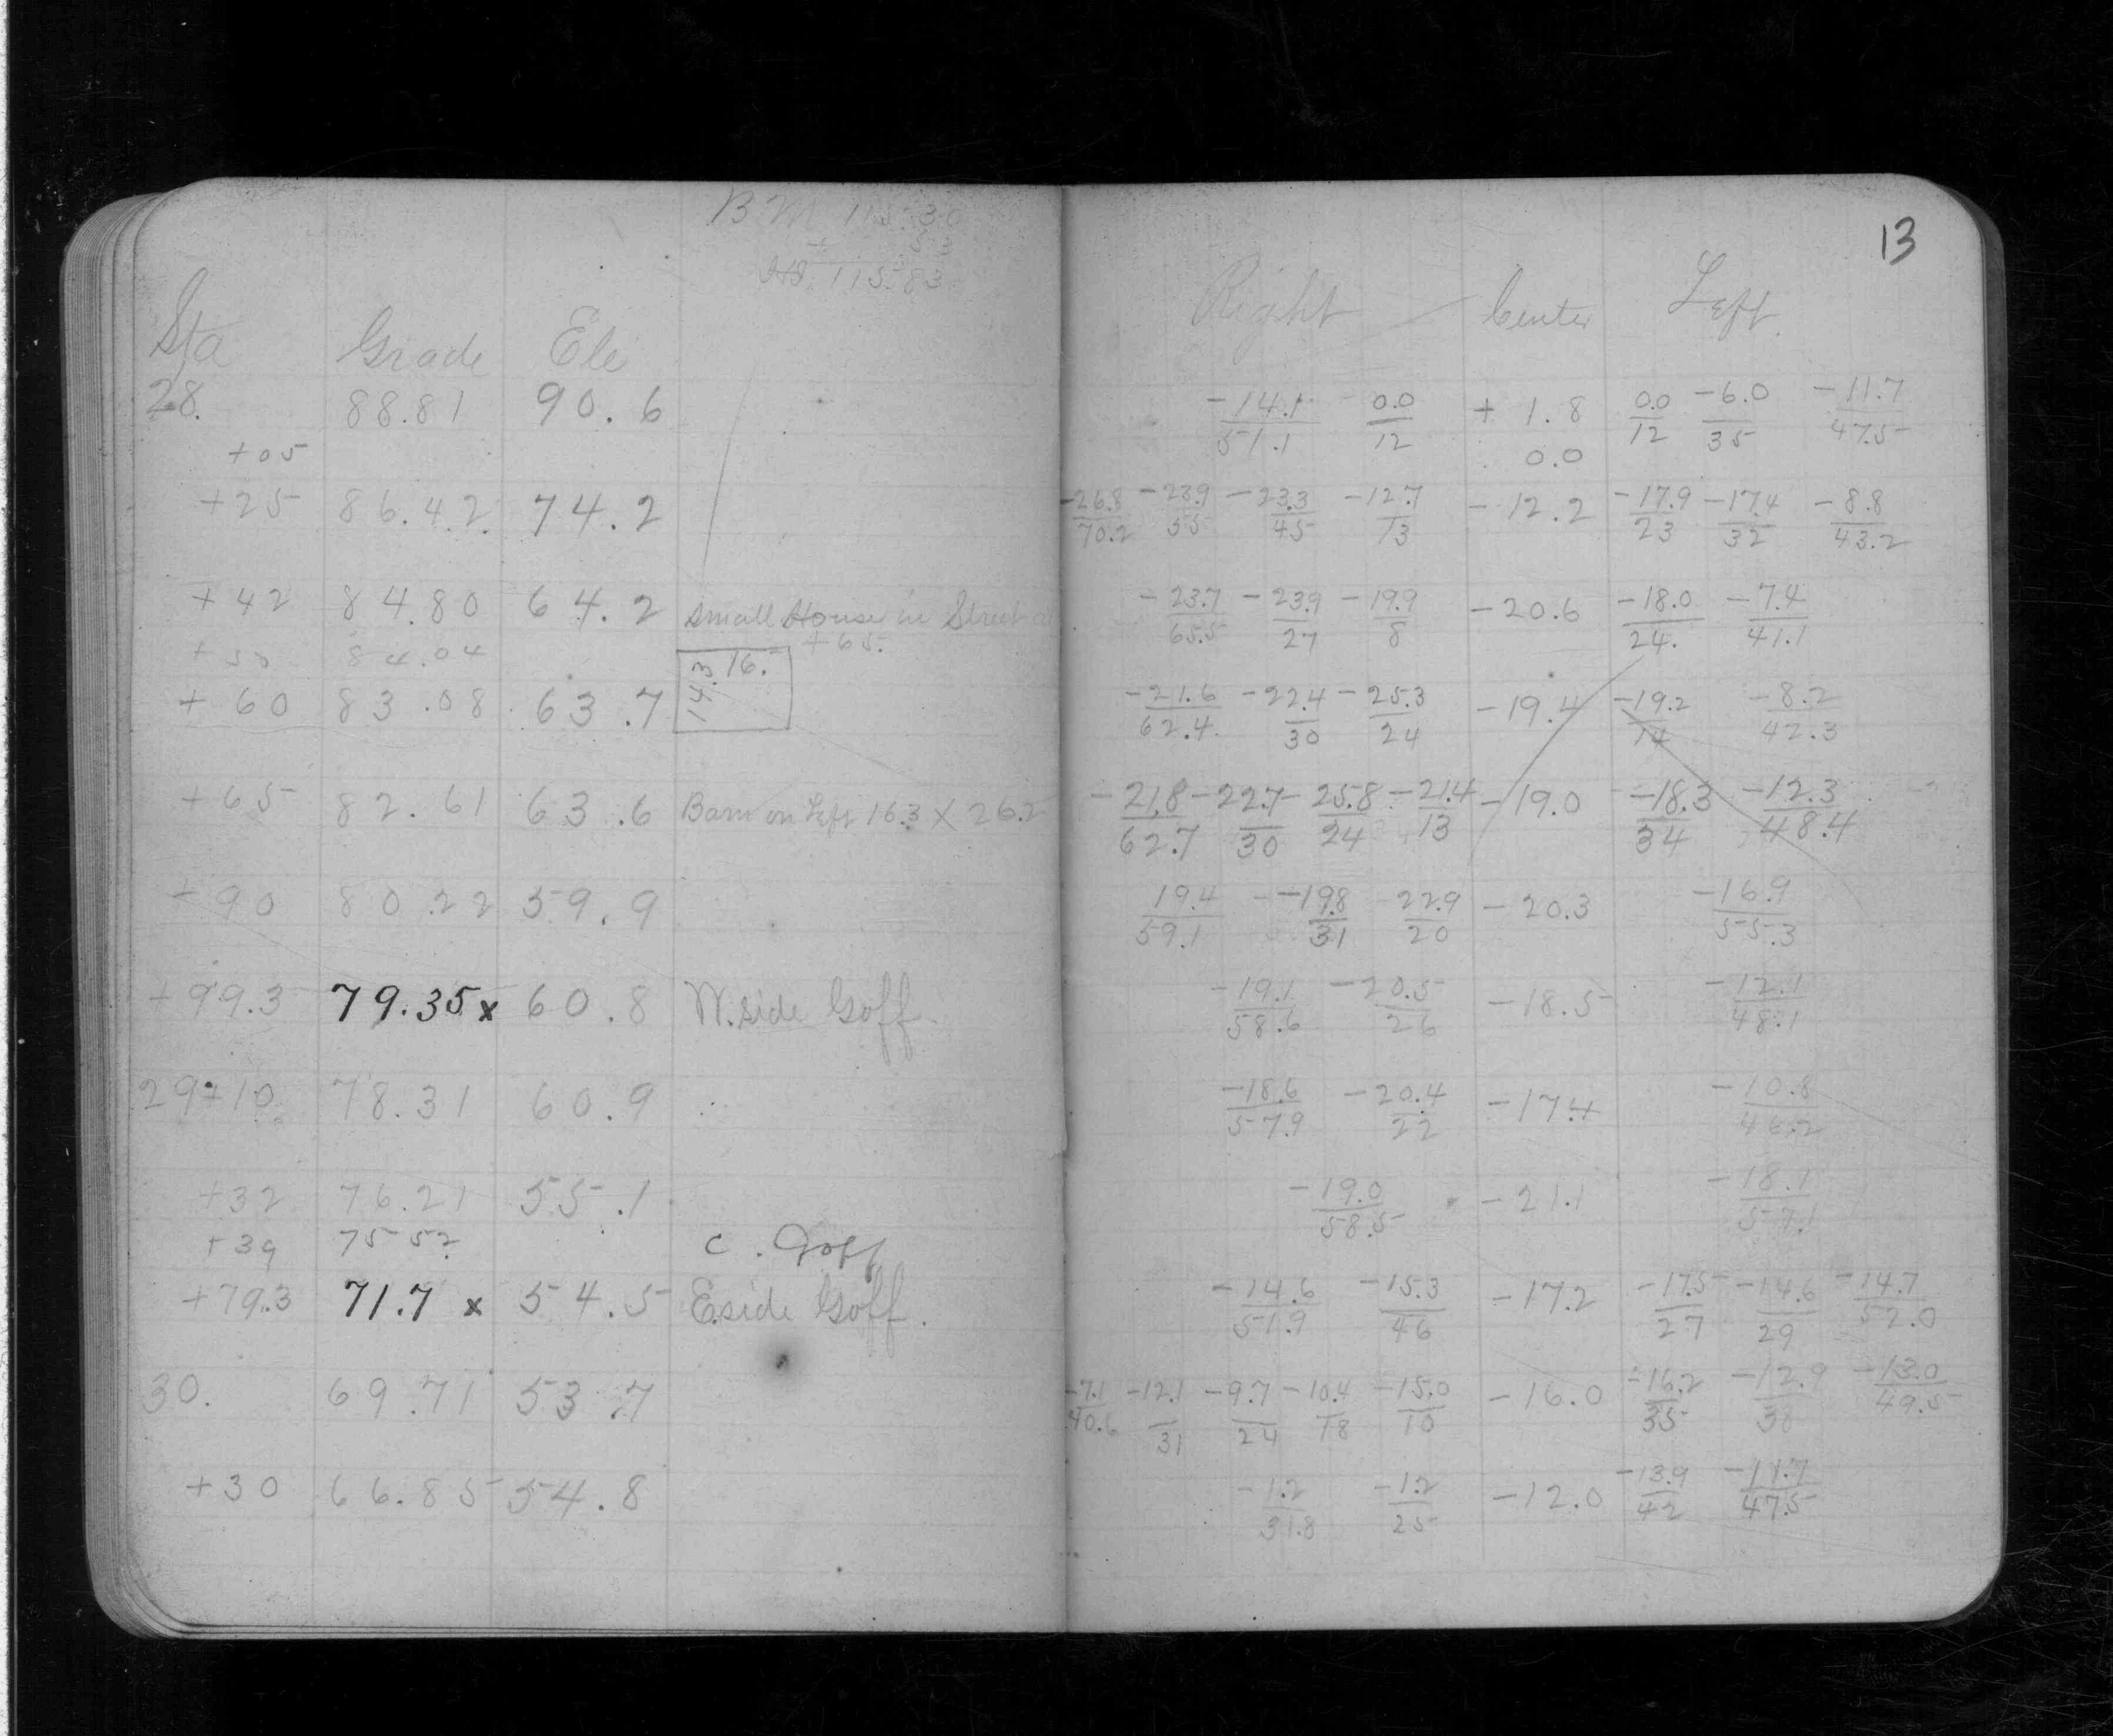 13
B M 115.30
+ .53
HI. 115.83
Sta Grade Ele Right Center Left
28. 88.81 90.6 -14.1/51.1 0.0/12 + 1.8 0.0/12 -6.0/35 -11.7/47.5
+05 0.0
+25 86.42 74.2 -26.8/70.2 -23.9/55 -23.3/45 -12.7/13 -12.2 -17.9/23 -17.4/32 -8.8/43.2
+42 84.80 64.2 small House in Street at -23.7/65.5 -23.9/27 -19.9/8 -20.6 -18.0/24. -7.4/41.1
+65.
+50 84.04
14.3 16.
+ 60 83.08 63.7 -21.6/62.4 -22.4/30 -25.3/24 -19.4 -19.2/14 -8.2/42.3
+65 82.61 63.6 Barn on Left 16.3 X 26.2 -21.8/62.7 -22.7/30 -25.8/24 -21.4/13 -19.0 -18.3/34 -12.3/48.4
+90 80.22 59.9 19.4/59.1 -19.8/31 22.9/20 -20.3 -16.9/55.3
+99.3 79.35 x 60.8 W. side Goff. -19.1/58.6 -20.5/26 -18.5 -12.1/48.1
29+10 78.31 60.9 -18.6/57.9 -20.4/22 -17.4 -10.8/46.2
+32 76.21 55.1 -19.0/58.5 -21.1 -18.1/57.1
+39 75 52 C. Goff
+79.3 71.7 x 54.5 E. side Goff. -14.6/51.9 -15.3/46 -17.2 -17.5/27 -14.6/29 -14.7/52.0
30. 69.71 53.7 -7.1/40.6 -12.1/31 -9.7/24 -10.4/18 -15.0/10 -16.0 -16.2/35 -12.9/38 -13.0/49.5
+30 66.85 54.8 -1.2/31.8 -1.2/25 -12.0 -13.9/42 -11.7/47.5